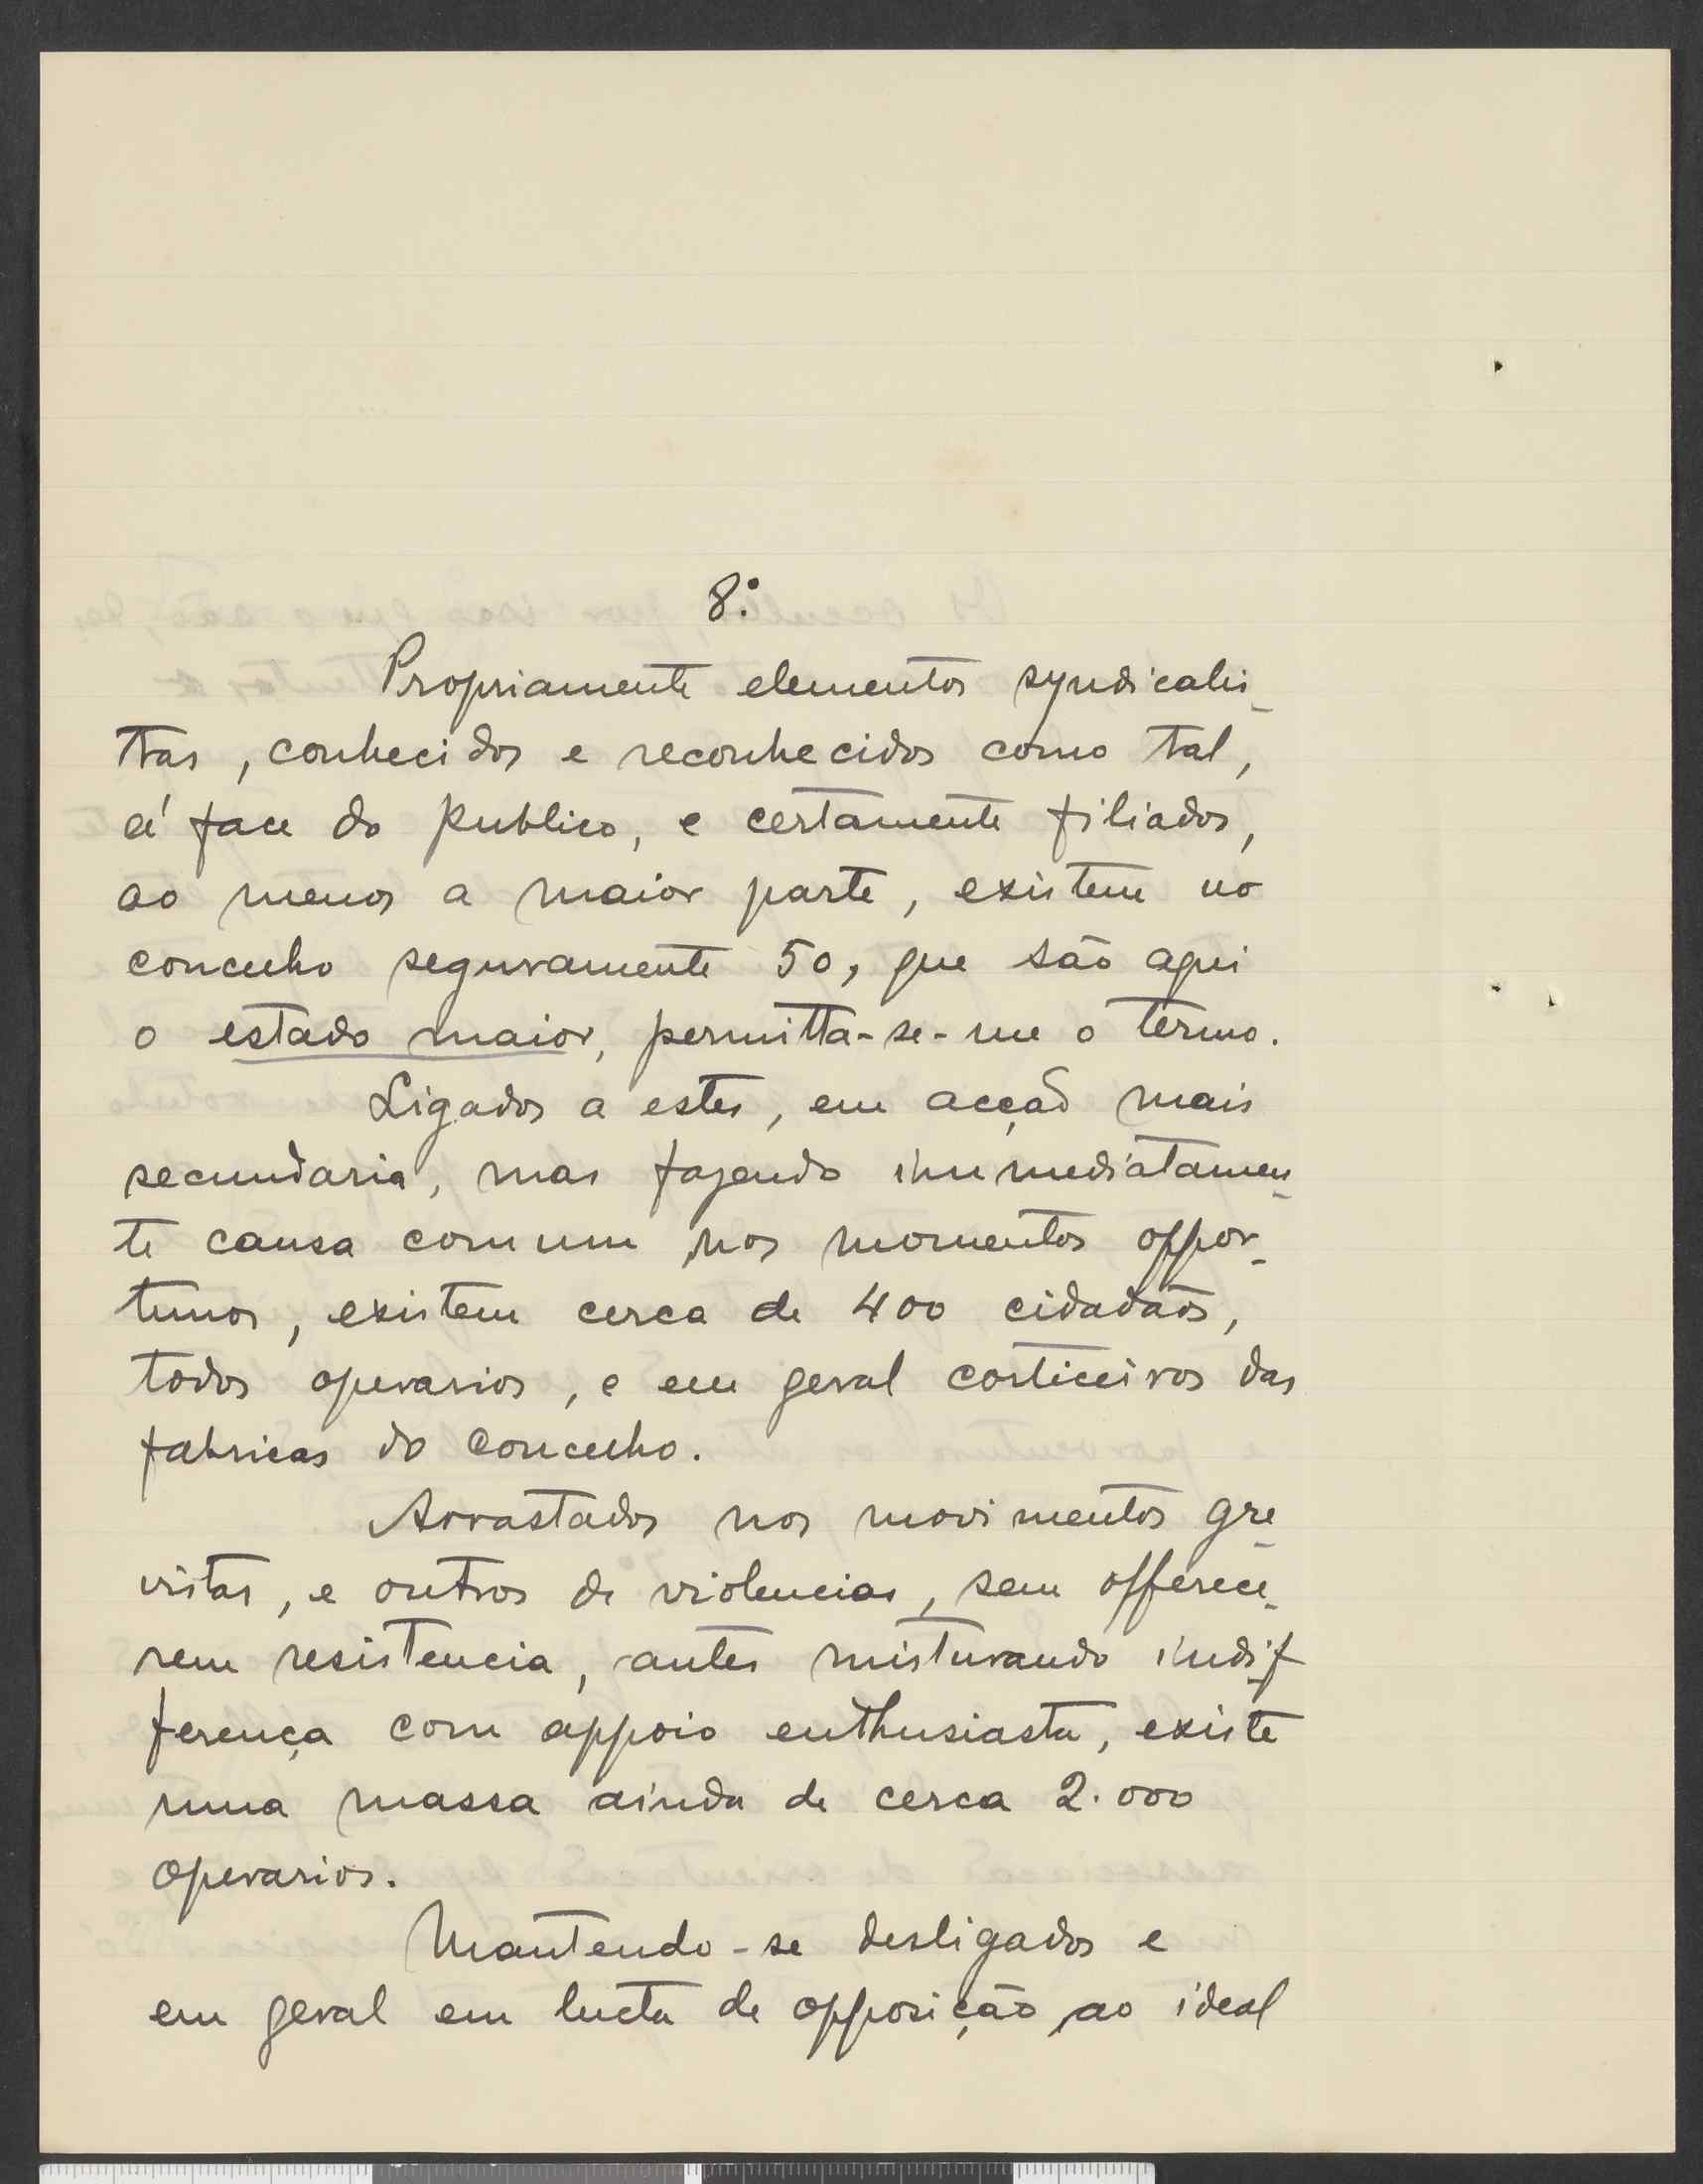 8.º
Propriamente elementos syndicalis-
tas, conhecidos e reconhecidos como tal,
á face do publico, e certamente filiados,
ao menos a maior parte, existem no
concelho seguramente 50, que são aqui
o estado maior, permitta-se-me o termo.
Ligados a estes, em acção mais
secundaria, mas fazendo immediatamen-
te causa commum nos momentos oppor-
tunos, existem cerca de 400 cidadãos,
todos operarios, e em geral corticeiros das
fabricas do concelho.
Arrastados nos movimentos gre-
vistas, e outros de violencias, sem offerece-
rem resistencia, antes misturando indif-
ferença com appoio enthusiasta, existe
uma massa ainda de cerca 2.000
operarios.
Mantendo-se desligados e
em geral em lucta de opposição ao ideal